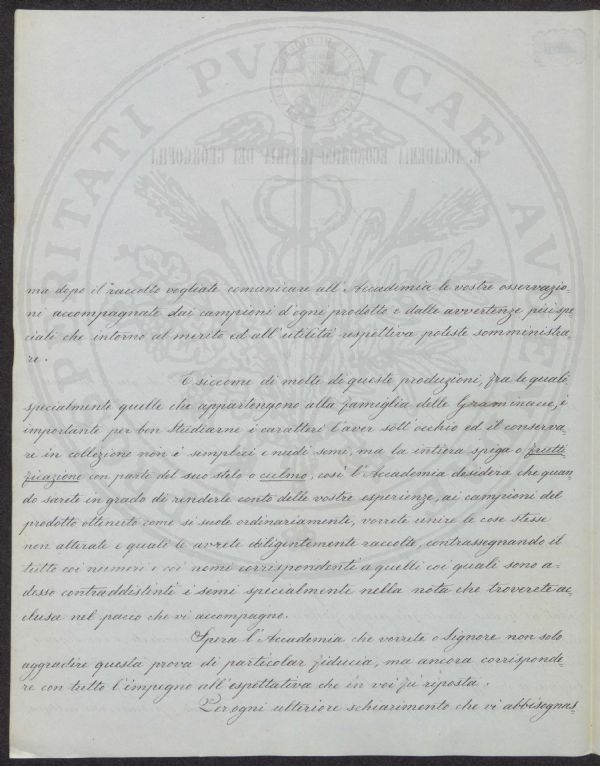 PROSPERITATI PVBLICAE AVGENDAE
R. ACCADEMIA ECONOMICO-AGRARIA DEI GEORGOFILI
ma dopo il raccolto vogliate comunicare all'Accademia le vostre osservazio-
ni accompagnate dai campioni d'ogni prodotto e dalle avvertenze più spe-
ciali che intorno al merito ed all'utilità respettiva poteste somministra-
re.
E siccome di molte di queste produzioni, fra le quali
specialmente quelle che appartengono alla famiglia delle Graminacee, è
importante per ben studiarne i caratteri l'aver sott'occhio ed il conserva-
re in collezione non è semplici e nudi semi, ma la intiera spiga o frutti-
ficazione con parte del suo stelo o culmo, così l'Accademia desidera che quan-
do sarete in grado di renderle conto delle vostre esperienze, ai campioni del
prodotto ottenuto come si suole ordinariamente, vorrete unire le cose stesse
non alterate e quali le avrete diligentemente raccolte, contrassegnando il
tutto coi numeri e coi nomi corrispondenti a quelli coi quali sono a-
desso contraddistinti i semi specialmente nella nota che troverete ac-
clusa nel pacco che vi accompagno.
Spera l'Accademia che vorrete o Signore non solo
aggradire questa prova di particolar fiducia, ma ancora corrisponde-
re con tutto l'impegno all'espettativa che in voi fu riposta.
Per ogni ulteriore schiarimento che vi abbisognas-